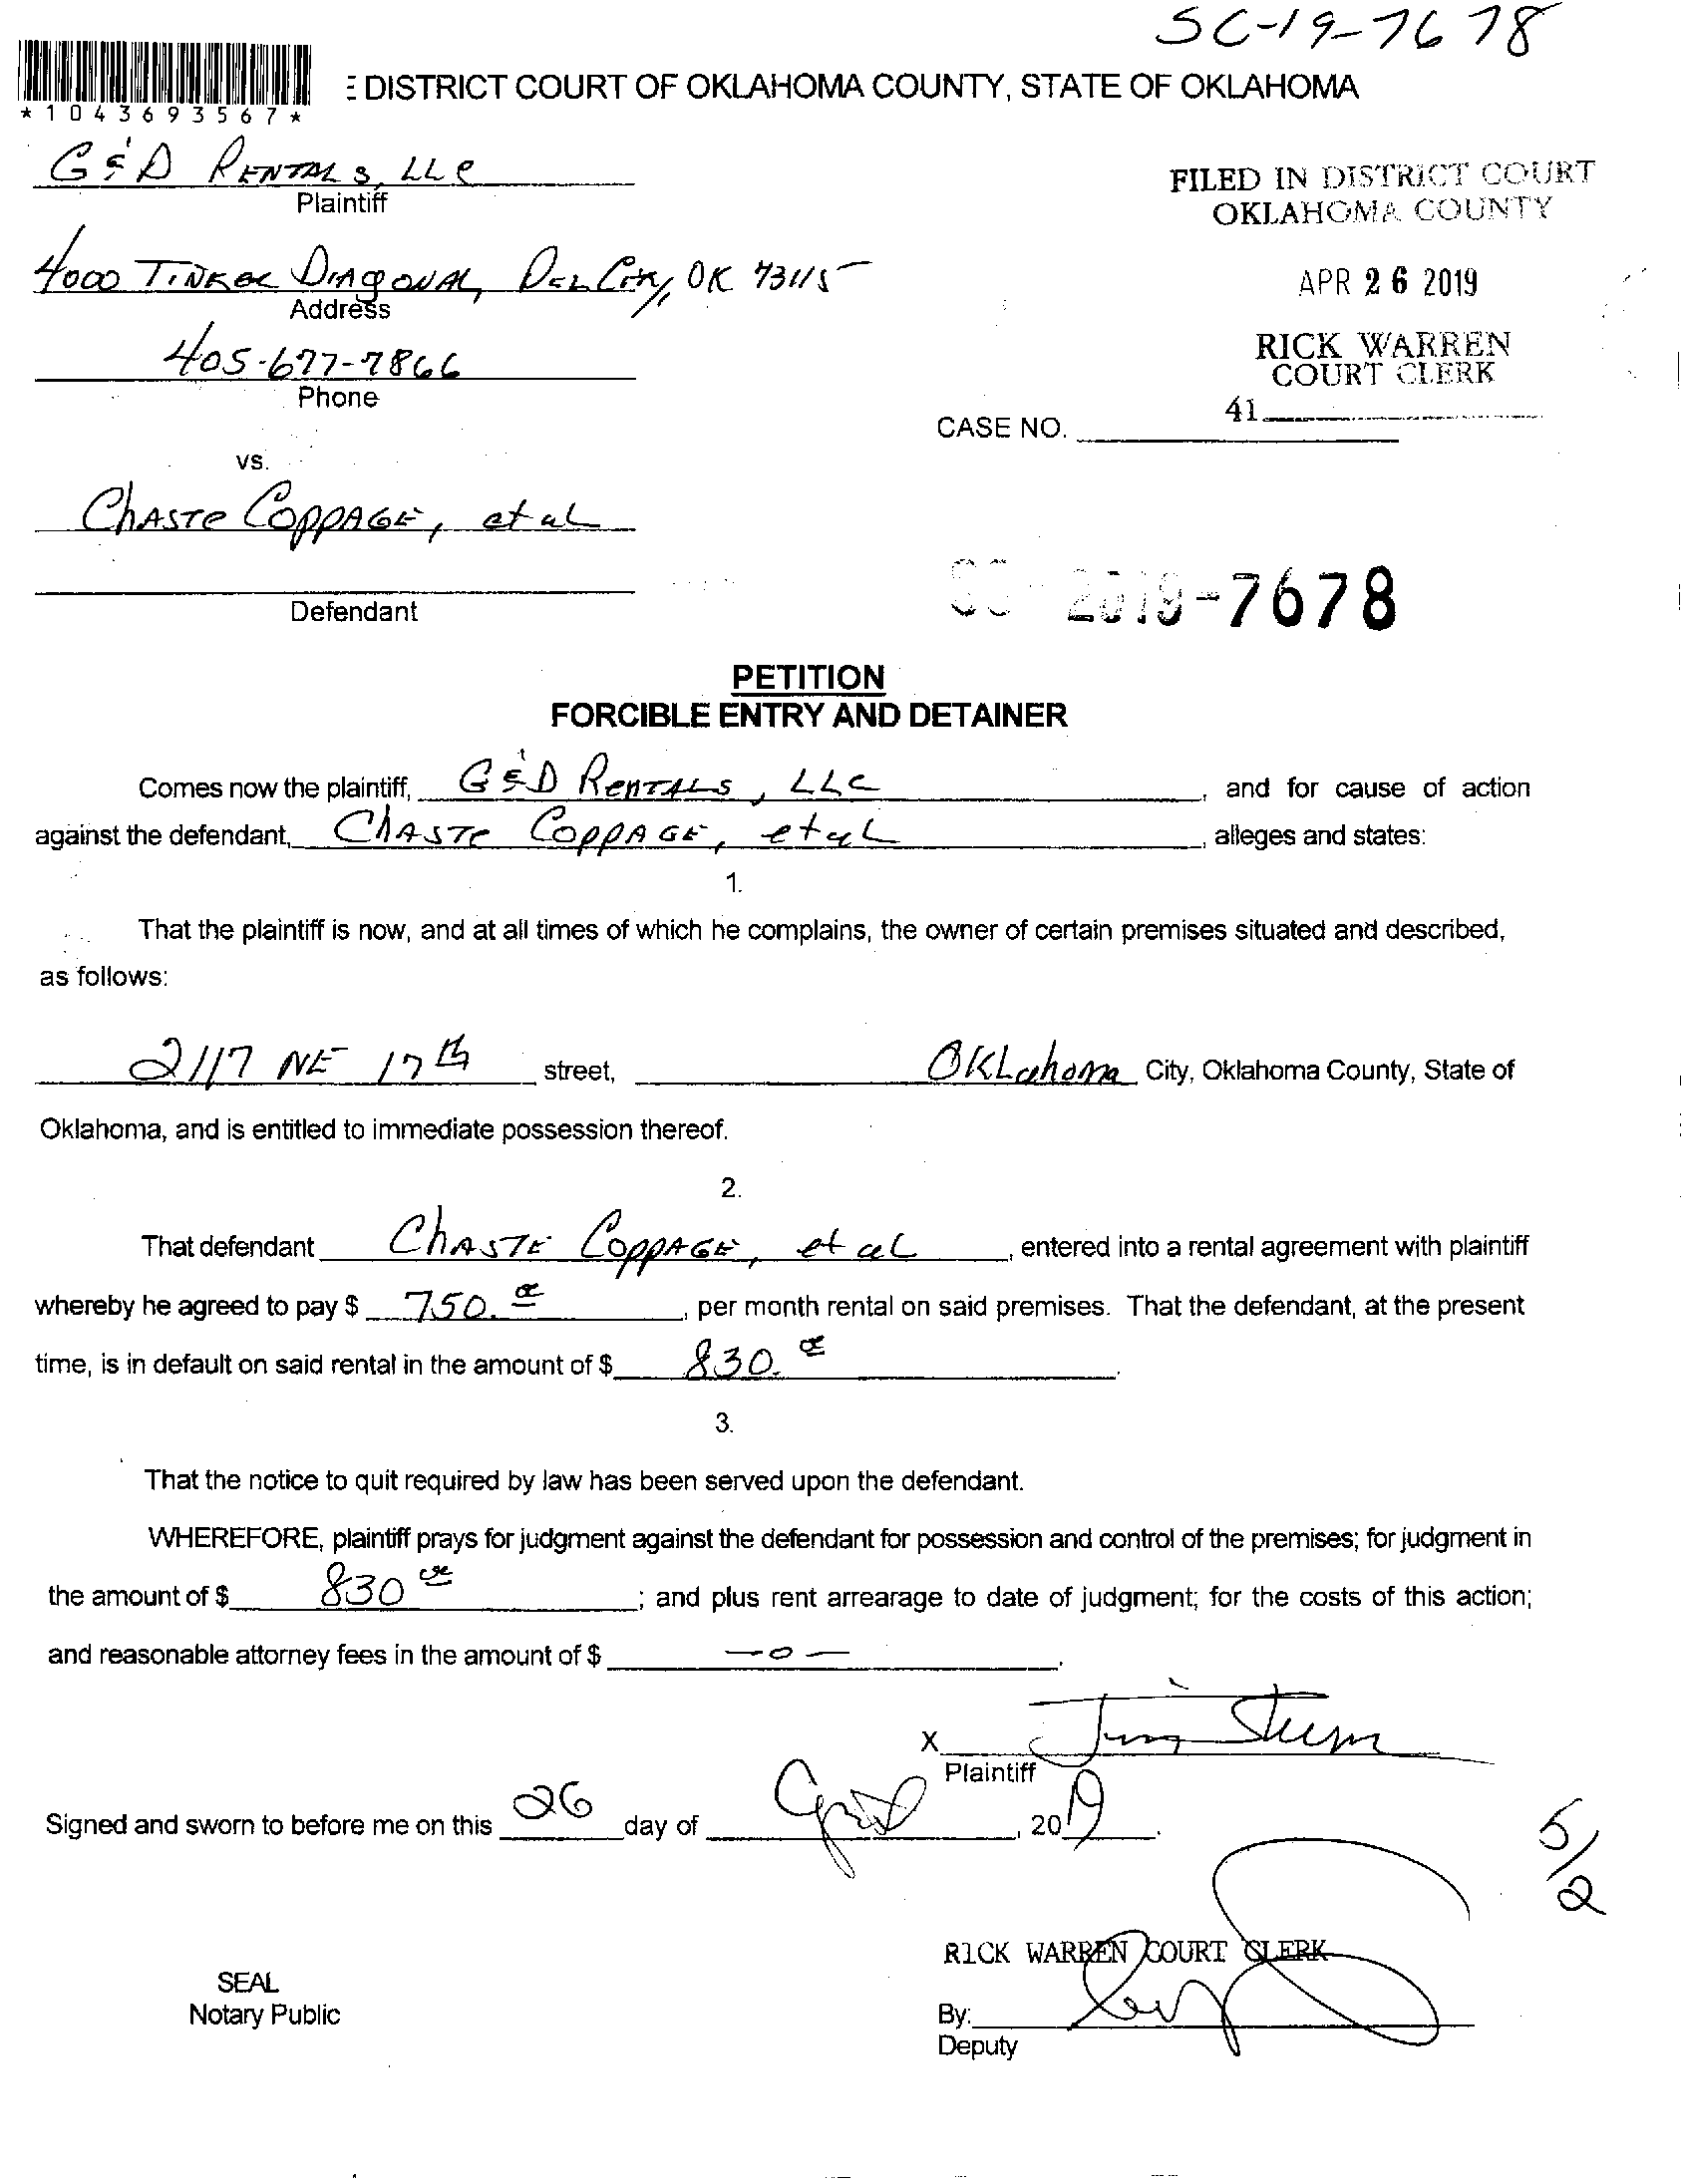 SC-19-7678
*1043693567*
E DISTRICT COURT OF OKLAHOMA COUNTY, STATE OF OKLAHOMA
G & D RENTALS, LLC
Plaintiff
FILED IN DISTRICT COURT
OKLAHOMA COUNTY
4000 TINKER DIAGONAL, DEL CITY, OK 73115
Address
APR 26 2019
405-677-7866
Phone
RICK WARREN
COURT CLERK
41
CASE NO.
vs.
CHASTE COPPAGE, et al
Defendant
SC 2019-7678
PETITION
FORCIBLE ENTRY AND DETAINER
Comes now the plaintiff, G & D RENTALS, LLC, and for cause of action
against the defendant, CHASTE COPPAGE, et al, alleges and states:
1.
That the plaintiff is now, and at all times of which he complains, the owner of certain premises situated and described,
as follows:
2117 NE 17th street, OKLahoma City, Oklahoma County, State of
Oklahoma, and is entitled to immediate possession thereof.
2.
That defendant CHASTE COPPAGE, et al, entered into a rental agreement with plaintiff
whereby he agreed to pay $ 750.00, per month rental on said premises. That the defendant, at the present
time, is in default on said rental in the amount of $ 830.00.
3.
That the notice to quit required by law has been served upon the defendant.
WHEREFORE, plaintiff prays for judgment against the defendant for possession and control of the premises; for judgment in
the amount of $ 830 00; and plus rent arrearage to date of judgment; for the costs of this action;
and reasonable attorney fees in the amount of $ -0-.
X
Plaintiff
Signed and sworn to before me on this 26 day of April, 2019.
5/2
RICK WARREN COURT CLERK
SEAL
Notary Public
By:
Deputy